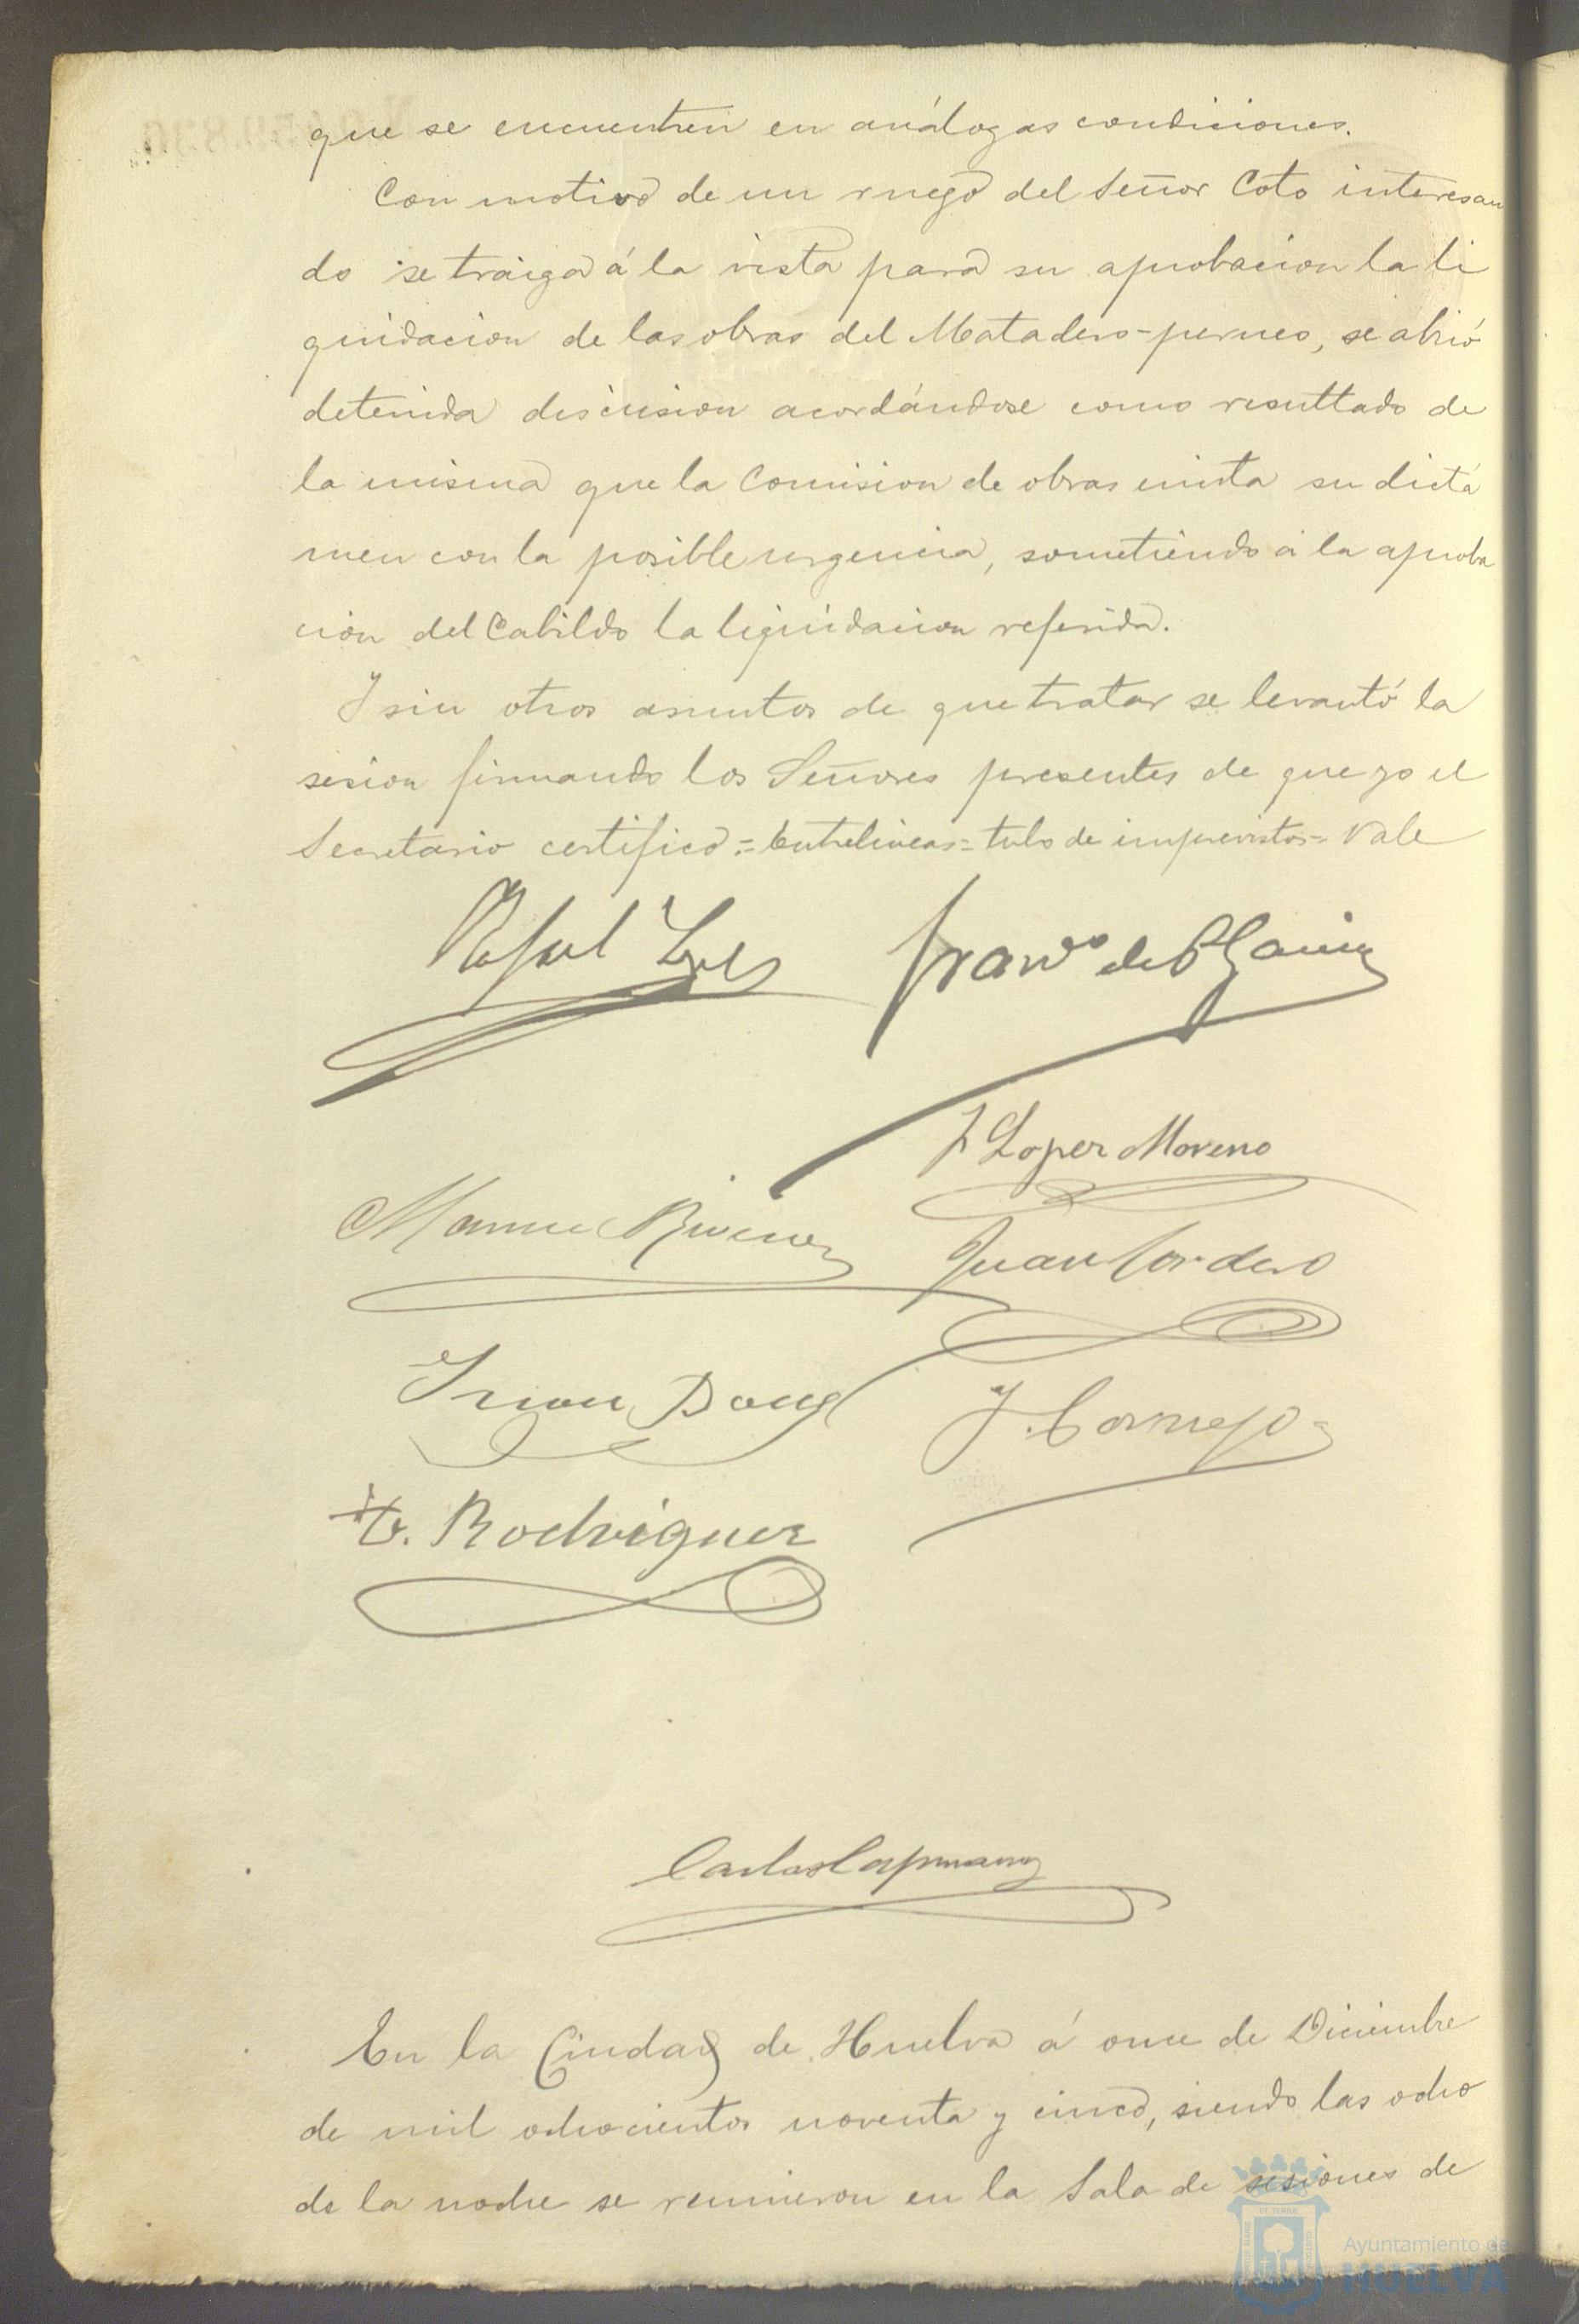 que se encuentren en análogas condiciones.
Con motivo de un ruego del Señor Coto interesan
do se traiga á la vista para su aprobacion la li
quidacion de las obras del Matadero-perneo, se abrió
detenida discusion acordándose como resultado de
la misma que la Comision de obras emita su dictá
men con la posible urgencia, sometiendo á la aproba
cion del Cabildo la liquidacion referida.
Y sin otros asuntos de que tratar se levantó la
sesion firmando los Señores presentes de que yo el
Secretario certifico.=Entrelineas=tulo de imprevistos=Vale
Rafael
Franco de P
J Lopez Moreno
Manuel
Juan Cordero
J. Cornejo
Rodriguez
Carlos
En la Ciudad de Huelva á once de Diciembre
de mil ochocientos noventa y cinco, siendo las ocho
de la noche se reunieron en la Sala de sesiones de
Ayuntamiento de
HUELVA